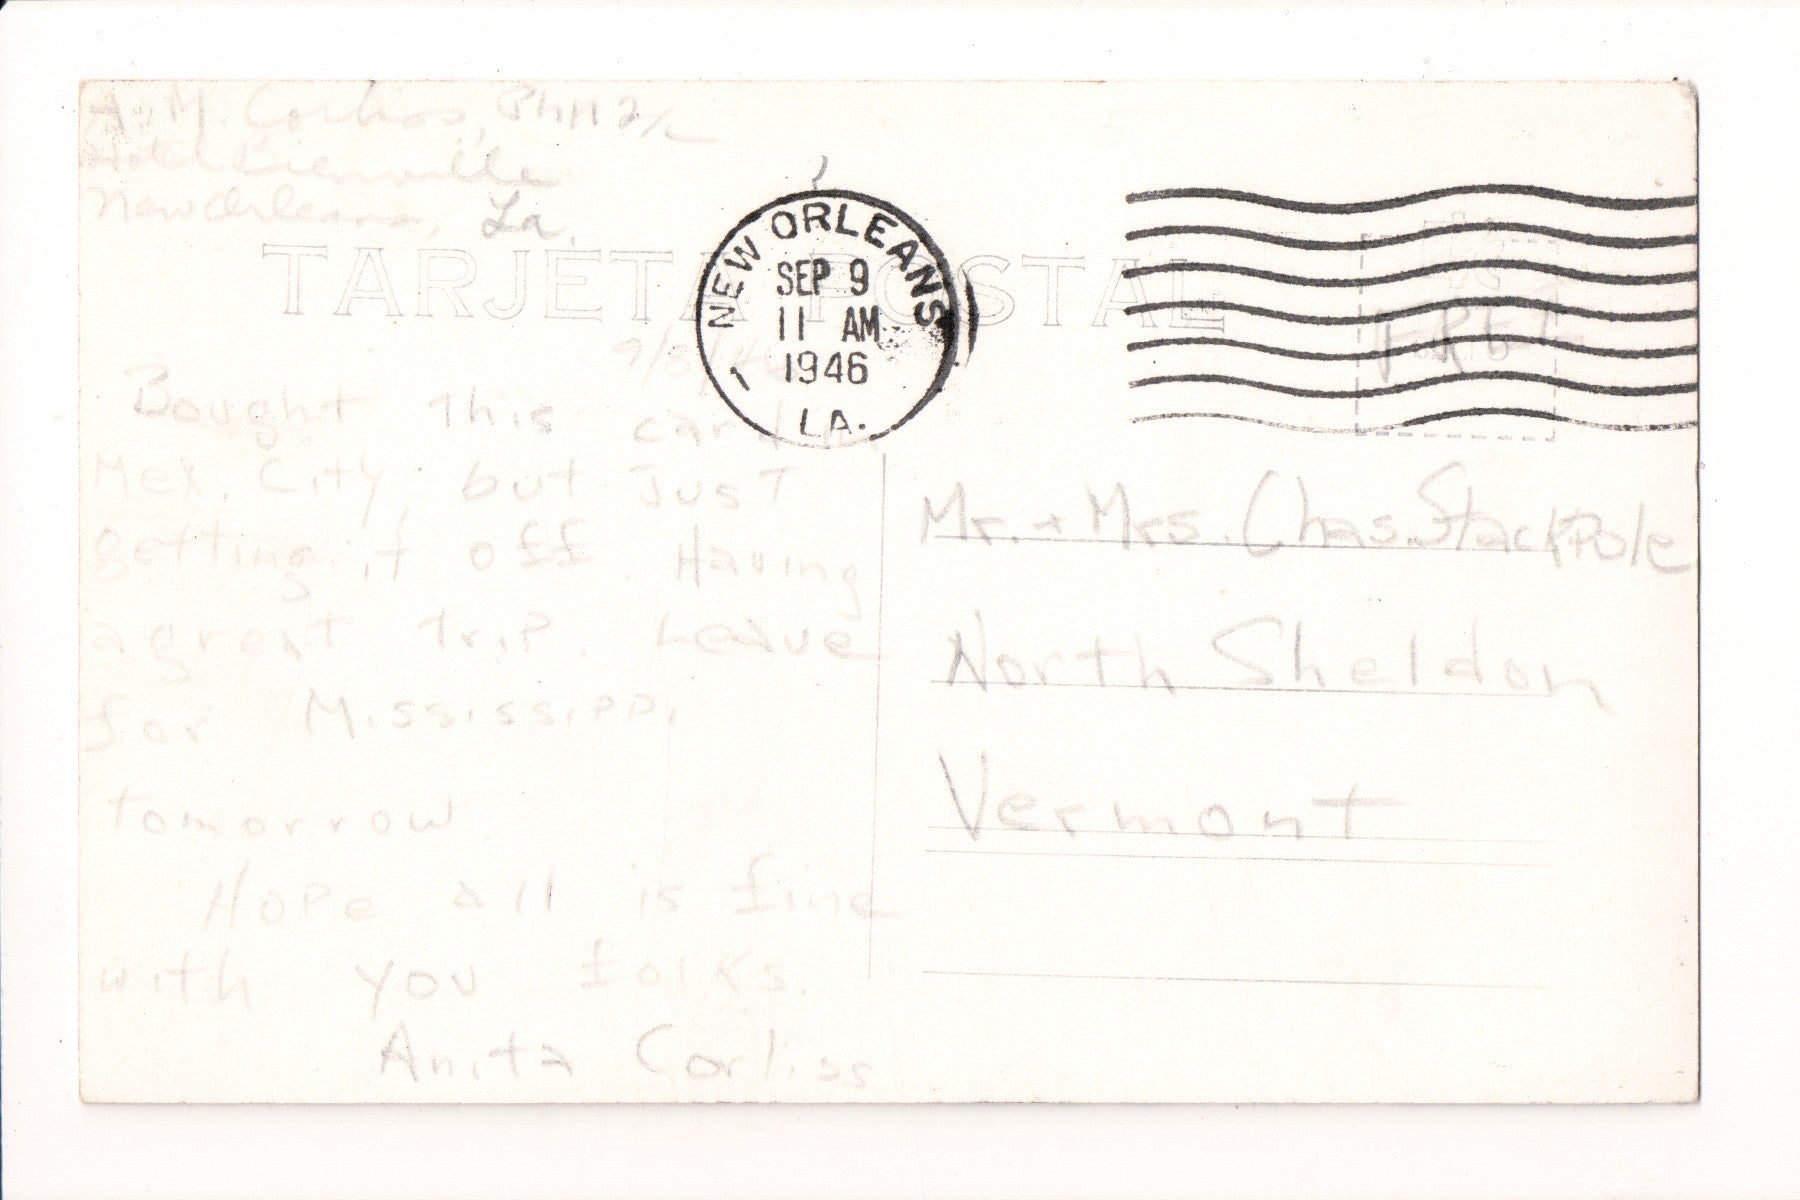 A. M. Corliss, PhM 2/c
Hotel Bienville
New Orleans, La.
TARJETA POSTAL
NEW ORLEANS
SEP 9
11 AM
1946
1
LA.
FREE
9/8/46
Bought this card in
Mex. City but Just
getting it off. Having
a great Trip. Leave
for Mississippi
tomorrow.
Hope all is fine
with you folks.
Anita Corliss
Mr. + Mrs. Chas. Stackpole
North Sheldon
Vermont